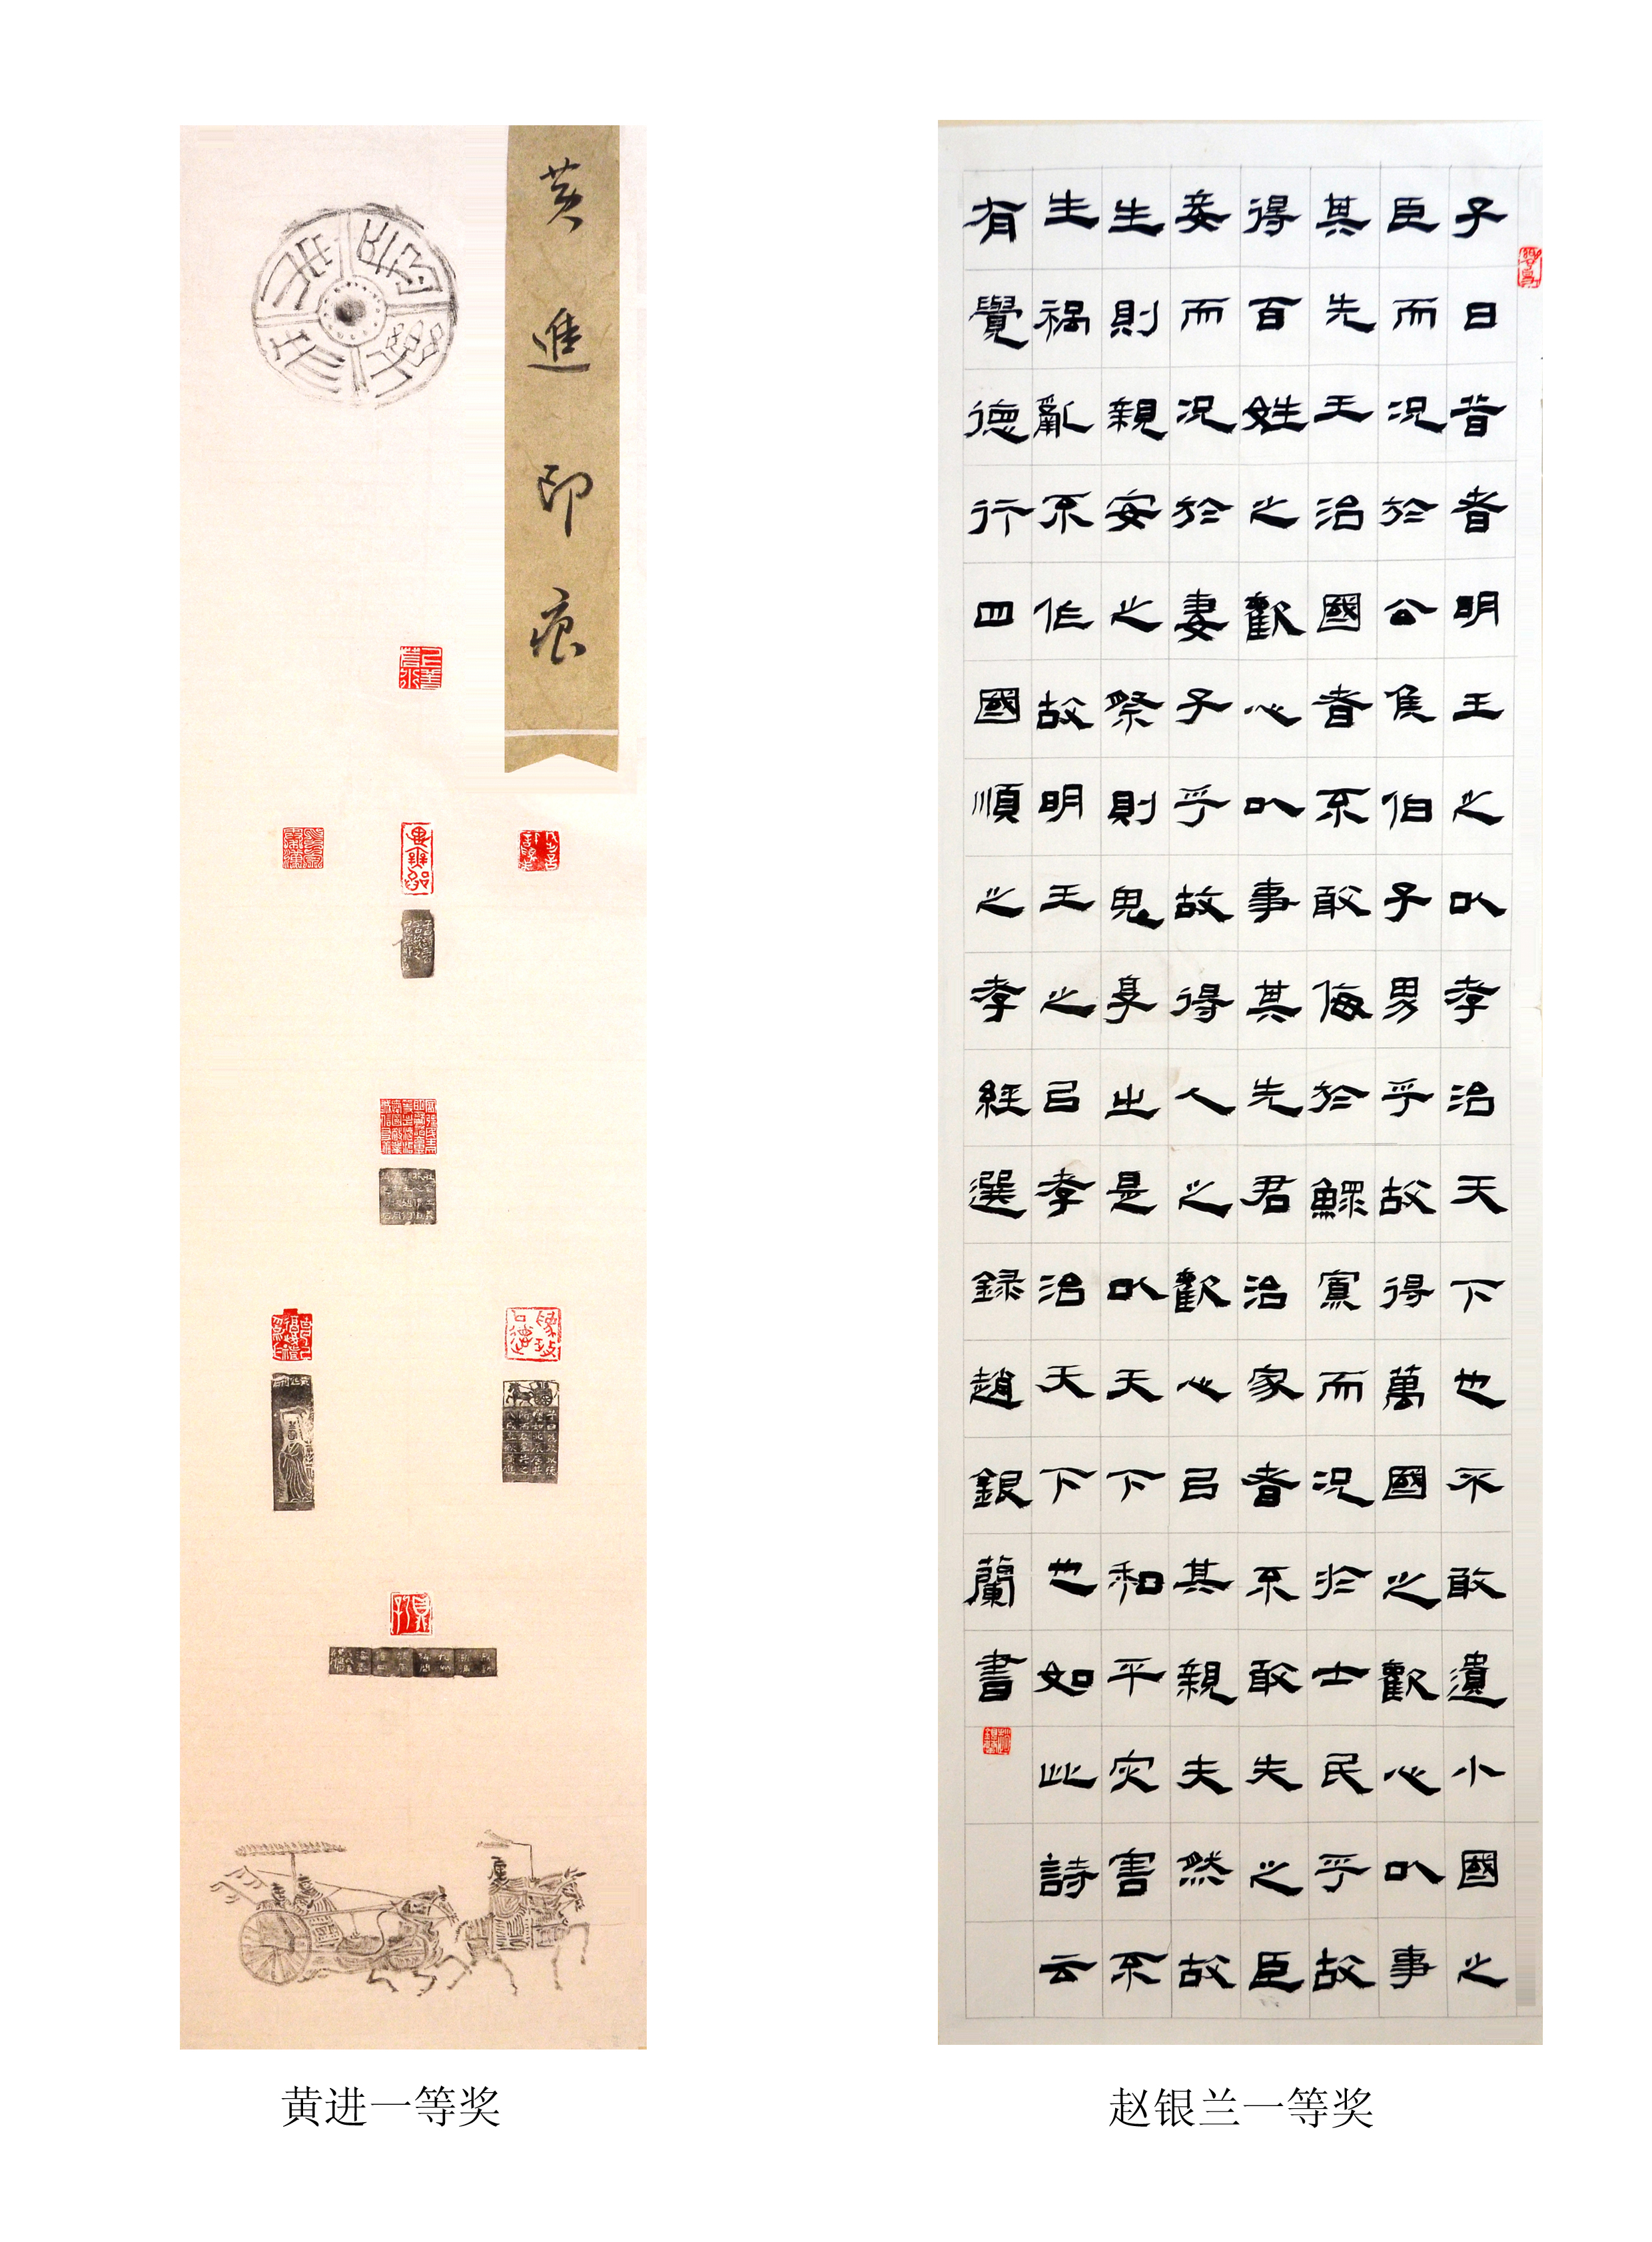 黄進印痕
子曰昔者明王之以孝治天下也不敢遺小國之
臣而況於公侯伯子男乎故得萬國之歡心以事
其先王治國者不敢侮於鰥寡而況於士民乎故
得百姓之歡心以事其先君治家者不敢失之臣
妾而況於妻子乎故得人之歡心以其親夫然故
生則親安之祭則鬼享之是以天下和平灾害不
生祸亂不作故明王之以孝治天下也如此詩云
有覺德行四國順之孝經選録趙銀蘭書
黄进一等奖
赵银兰一等奖